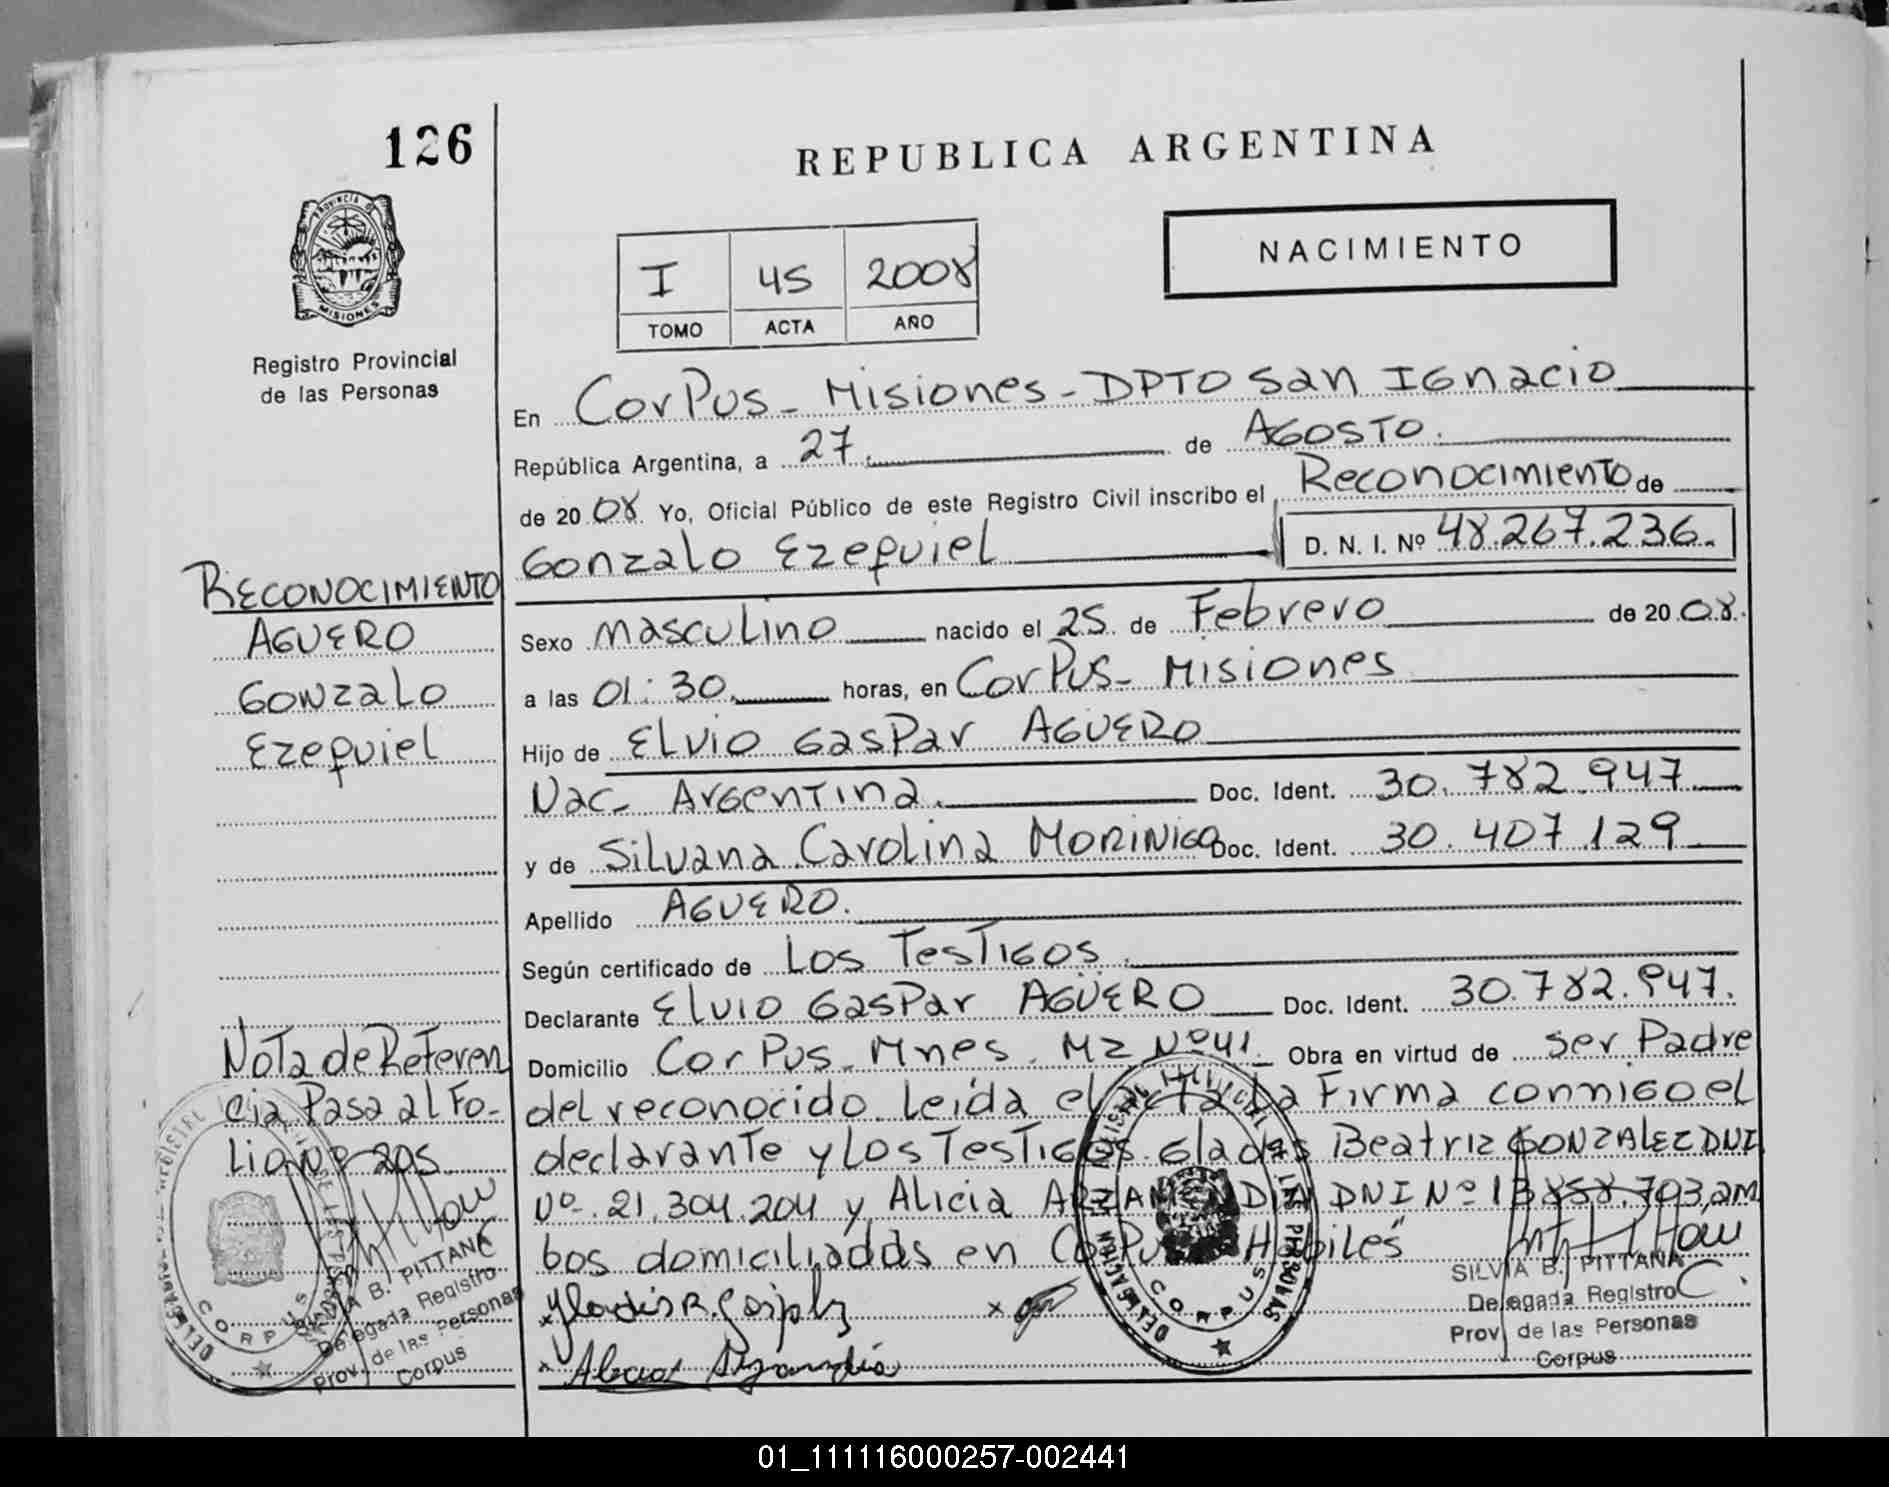 126
REPUBLICA ARGENTINA
PROVINCIA DE
MISIONES
Registro Provincial
de las Personas
NACIMIENTO
I 45 2008
TOMO ACTA AÑO
En CorPus - Misiones - DPTO San Ignacio
República Argentina, a 27. de AGOSTO.
de 20 08 Yo, Oficial Público de este Registro Civil inscribo el Reconocimiento de
Gonzalo Ezequiel D. N. I. Nº 48.267.236.
RECONOCIMIENTO
AGUERO
Gonzalo
Ezequiel
Sexo masculino nacido el 25 de Febrero de 20 08.
a las 01:30 horas, en CorPus - Misiones
Hijo de Elvio GasPar AGUERO
Nac. Argentina. Doc. Ident. 30.782.947
y de Silvana Carolina MORINIGO Doc. Ident. 30.407.129
Apellido AGUERO.
Según certificado de Los Testigos.
Declarante Elvio GasPar AGÜERO Doc. Ident. 30.782.947.
Domicilio CorPus - Mnes. Mz Nº 41. Obra en virtud de ser Padre
del reconocido. Leida el acta la Firma conmigo el
declarante y los Testigos. Gladis Beatriz GONZALEZ DNI
Nº 21.304.204 y Alicia ARZAMENDIA DNI Nº 13.858.793, am
bos domiciliadas en Corpus "Habiles"
Nota de Referen
cia Pasa al Fo-
lio Nº 205
SILVIA B. PITTANA
Delegada Registro
Prov. de las Personas
Corpus
B. PITTANA
Delegada Registro
Prov. de las Personas
Corpus
DELEGACION CORPUS
CORPUS
01_111116000257-002441